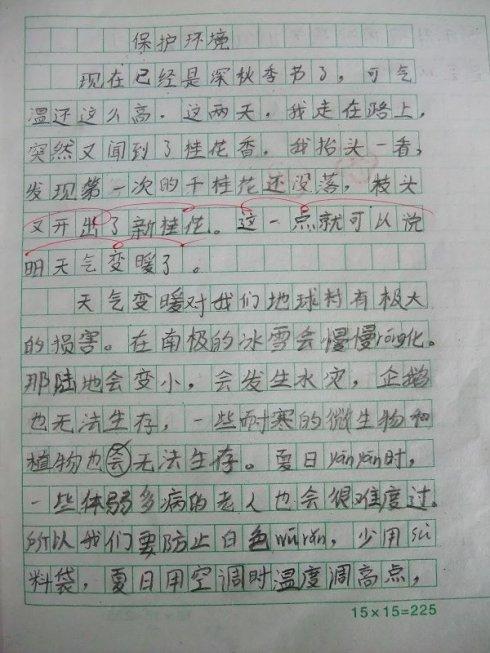 保护环境
现在已经是深秋季节了，可气
温还这么高．这两天，我走在路上，
突然又闻到了桂花香，我抬头一看，
发现第一次的干桂花还没落，枝头
又开出了新桂花。这一点就可以说
明天气变暖了。
天气变暖对我们地球村有极大
的损害。在南极的冰雪会慢慢róng化。
那陆地会变小，会发生水灾，企鹅
也无法生存，一些耐寒的微生物和
植物也会无法生存。夏日yányán时，
一些体弱多病的老人也会很难度过。
所以我们要防止白色wūrǎn，少用sù
料袋，夏日用空调时温度调高点，
15×15=225